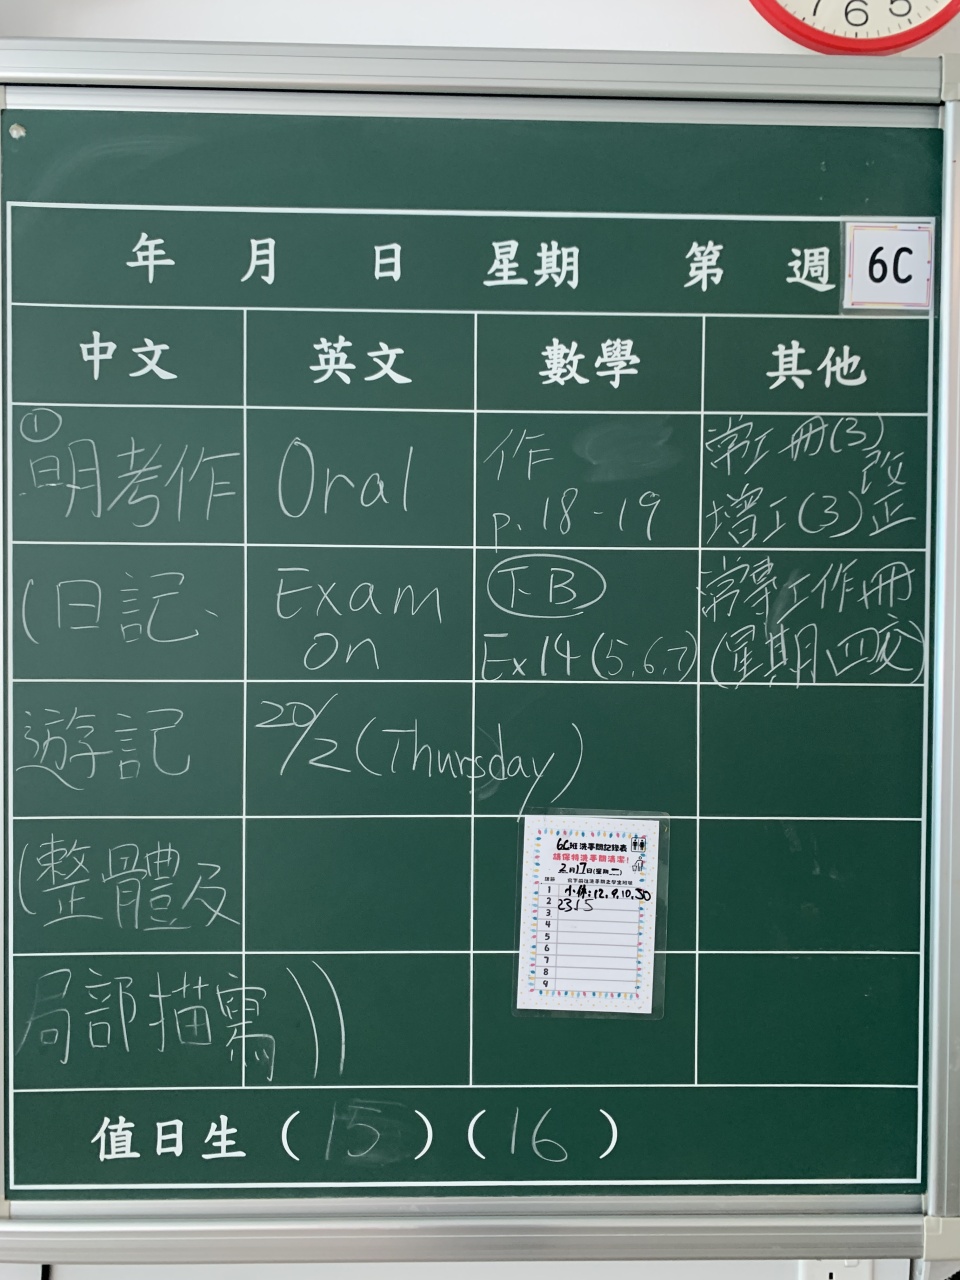 7 6 5
年 月 日 星期 第 週 6C
中文 英文 數學 其他
①
明考作
(日記、
遊記
(整體及
局部描寫))
Oral
Exam
on
20/2 (Thursday)
作
p. 18-19
T.B
Ex14 (5,6,7)
常工冊(3)
改
增工(3)正
常工作冊
(星期四交)
6C班洗手間記錄表
請保持洗手間清潔!
2月17日(星期二)
1 小休:12, 9, 10, 30
2 23 15
3
4
5
6
7
8
9
值日生 (15) (16)